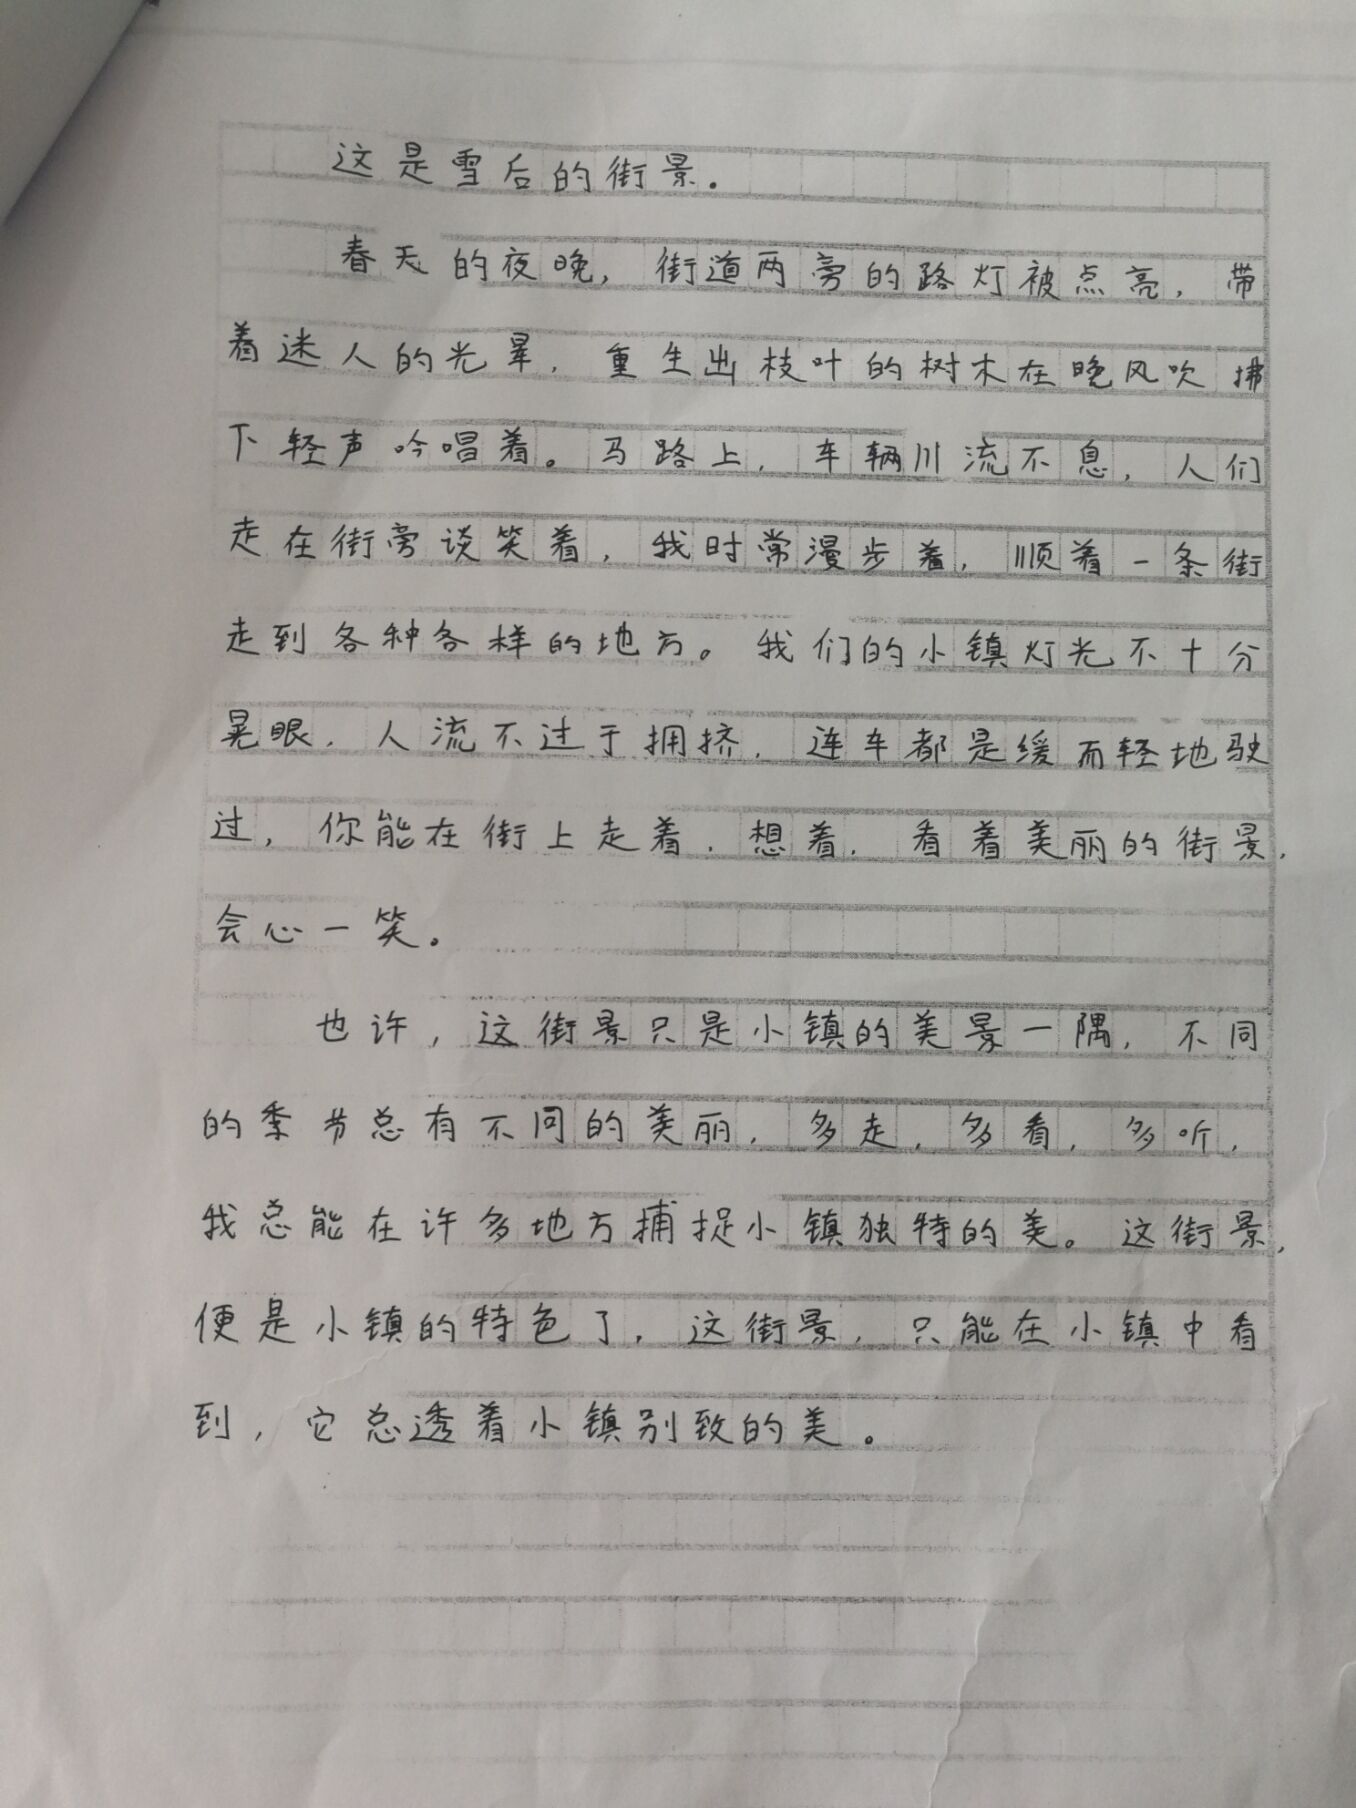 这是雪后的街景。
春天的夜晚，街道两旁的路灯被点亮，带
着迷人的光晕，重生出枝叶的树木在晚风吹拂
下轻声吟唱着。马路上，车辆川流不息，人们
走在街旁谈笑着，我时常漫步着，顺着一条街
走到各种各样的地方。我们的小镇灯光不十分
晃眼，人流不过于拥挤，连车都是缓而轻地驶
过，你能在街上走着，想着，看着美丽的街景，
会心一笑。
也许，这街景只是小镇的美景一隅，不同
的季节总有不同的美丽，多走，多看，多听，
我总能在许多地方捕捉小镇独特的美。这街景，
便是小镇的特色了，这街景，只能在小镇中看
到，它总透着小镇别致的美。